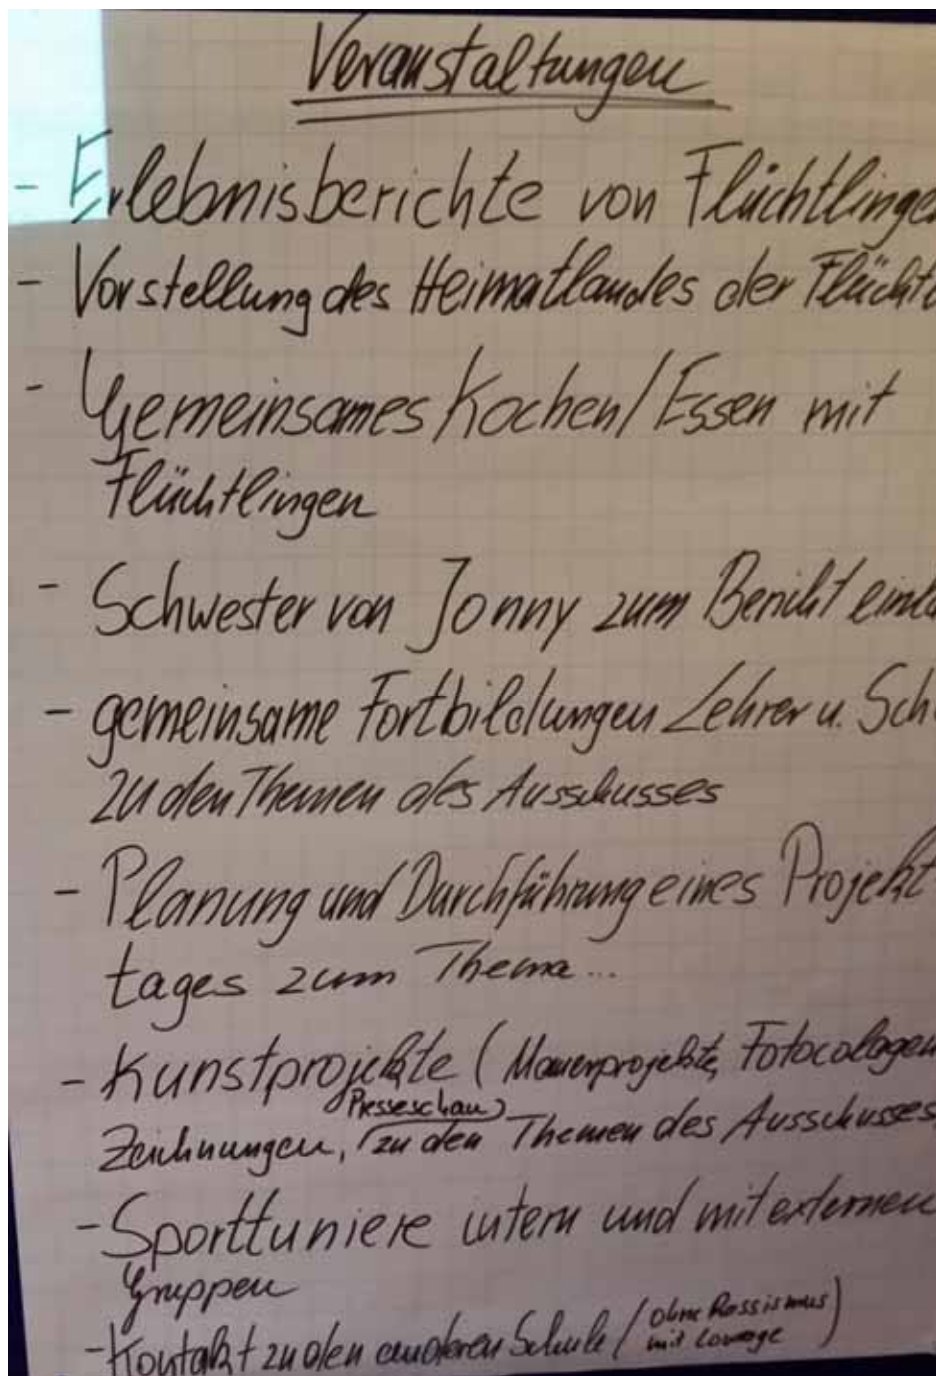 Veranstaltungen
- Erlebnisberichte von Flüchtlinge
- Vorstellung des Heimatlandes der Flüchtl
- Gemeinsames Kochen/Essen mit
Flüchtlingen
- Schwester von Jonny zum Bericht einla
- gemeinsame Fortbildungen Lehrer u. Sch
zu den Themen des Ausschusses
- Planung und Durchführung eines Projekt
tages zum Thema...
- Kunstprojekte (Mauerprojekte, Fotocolagen
Presseschau)
Zeichnungen, zu den Themen des Ausschusses
- Sporttuniere intern und mit externen
Gruppen
- Kontakt zu den anderen Schule (ohne Rassismus
mit Courage)